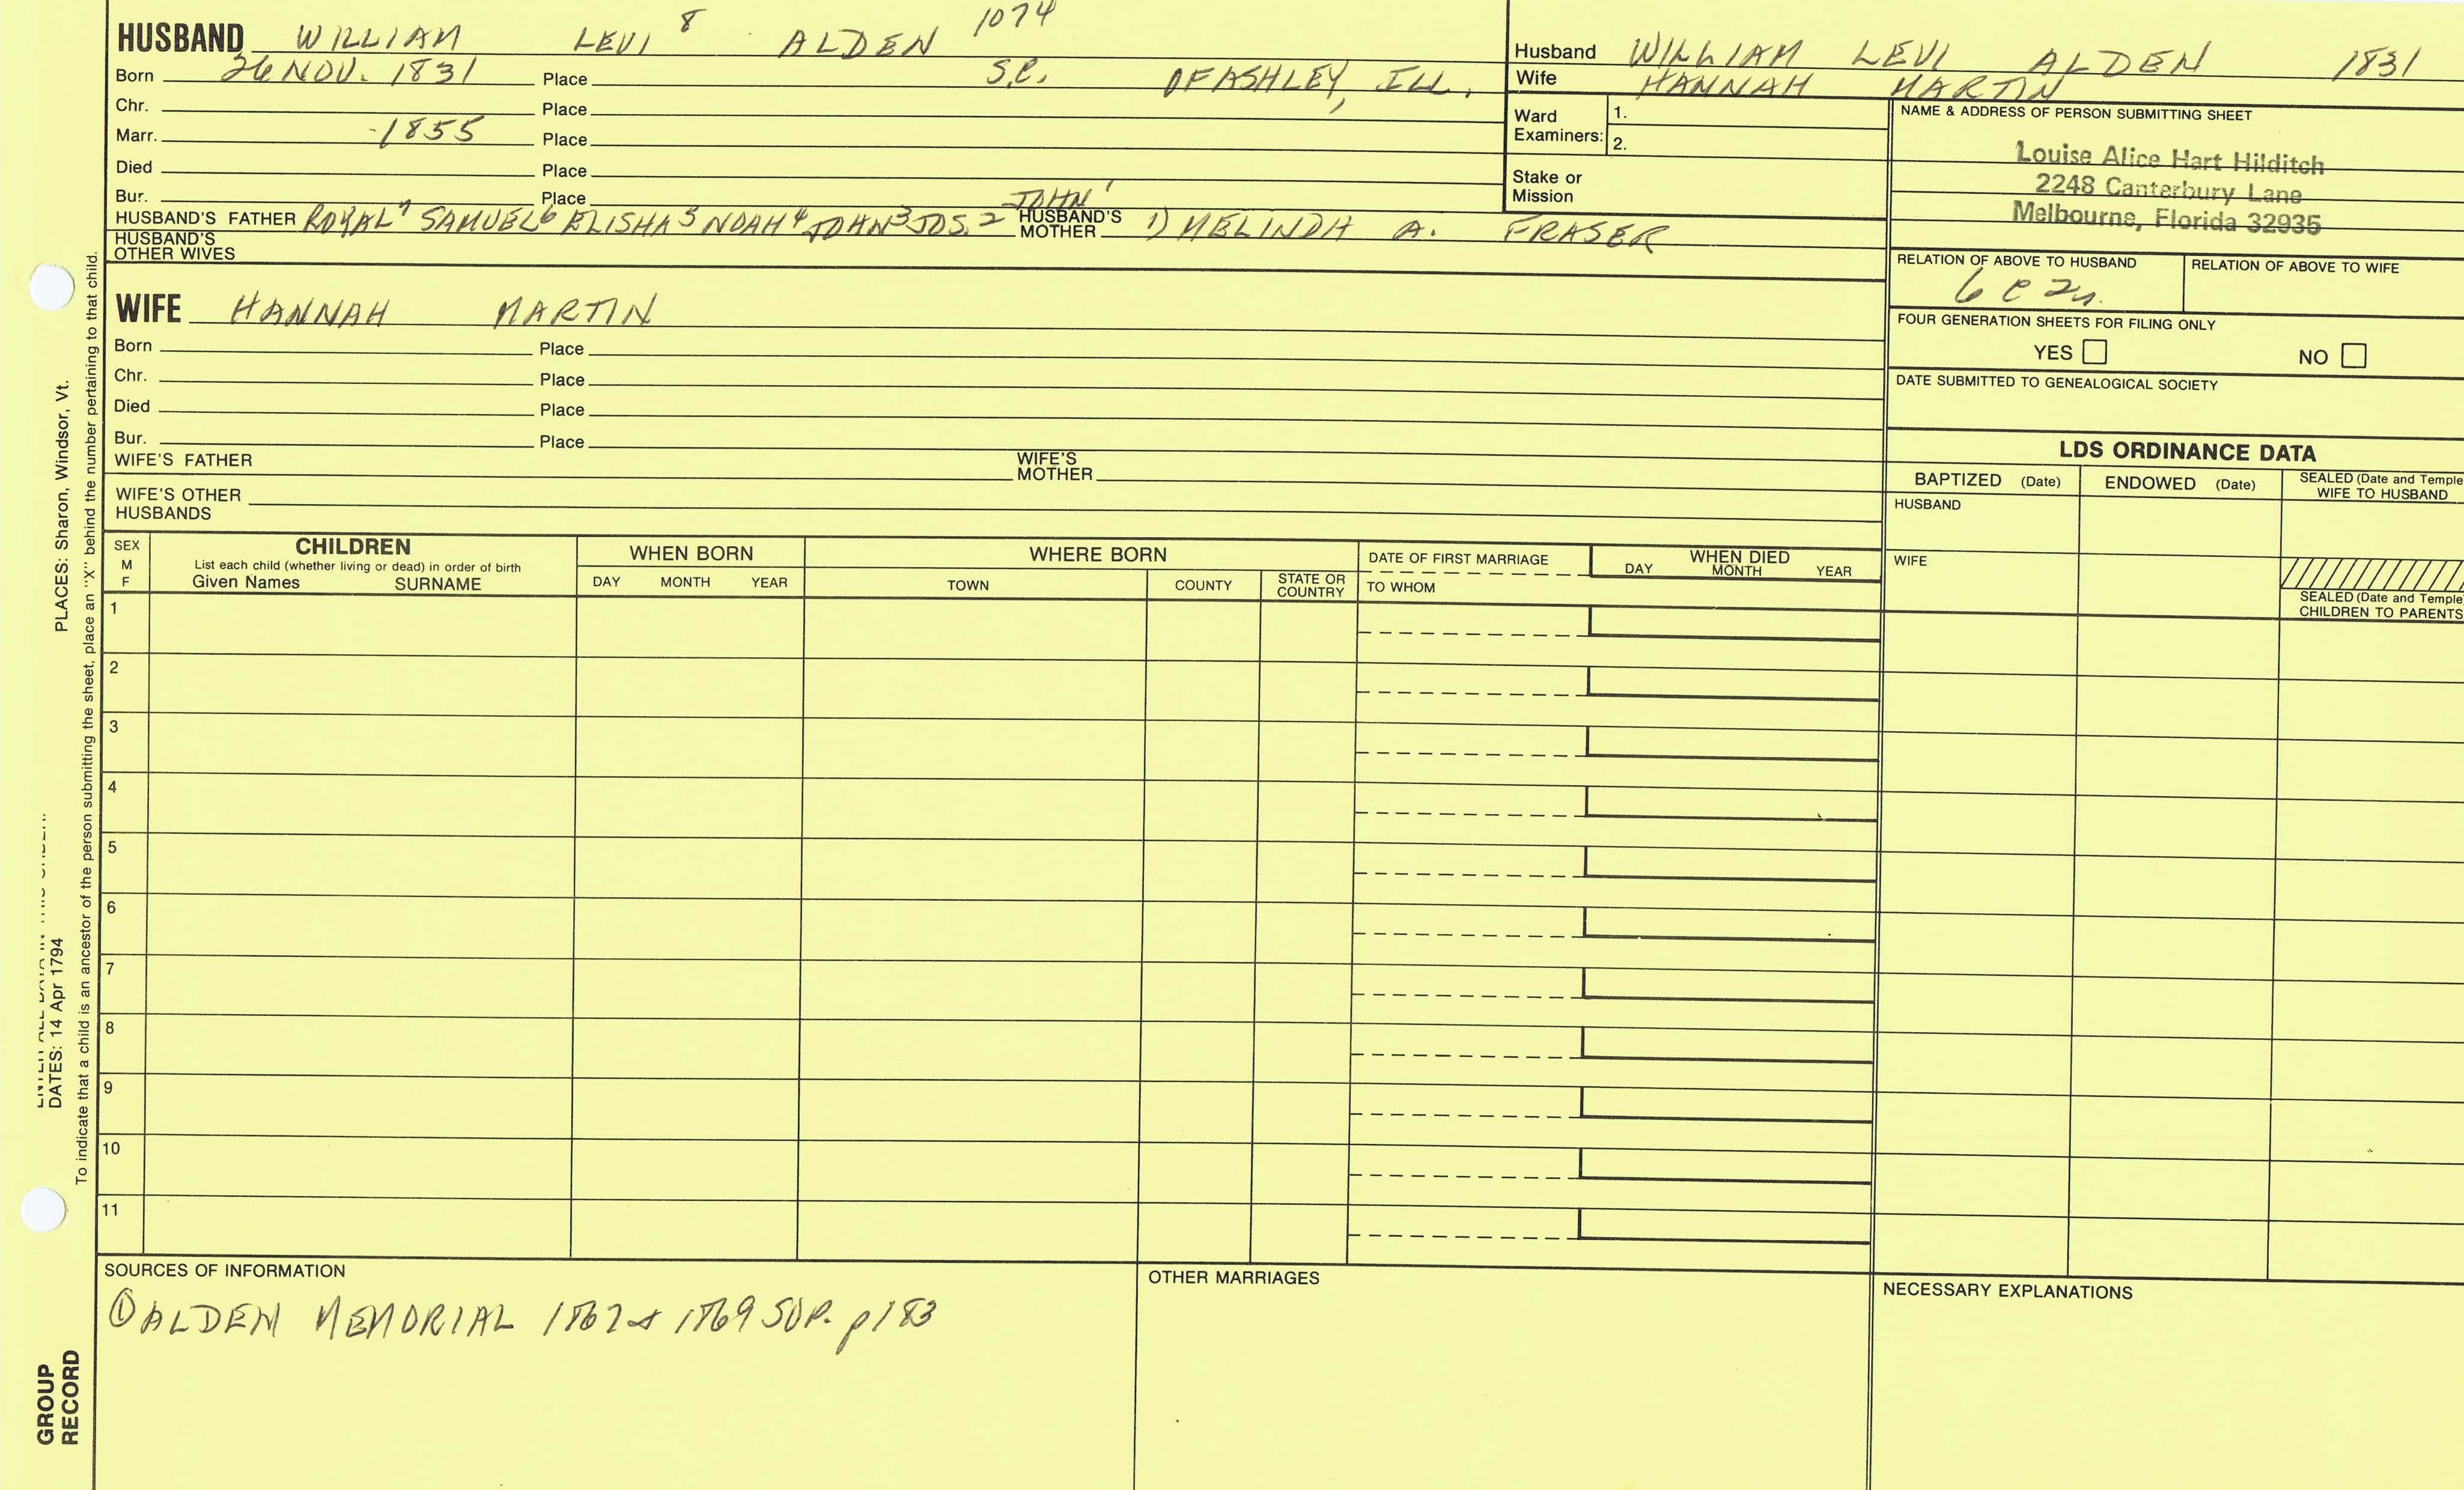 HUSBAND WILLIAM LEVI 8 ALDEN 1074
Born 26 NOV. 1831 Place S.C. OF ASHLEY, ILL.
Chr. Place
Marr. 1855 Place
Died Place
Bur. Place
JOHN 1
HUSBAND'S FATHER ROYAL 7 SAMUEL 6 ELISHA 5 NOAH 4 JOHN 3 JOS. 2 HUSBAND'S MOTHER 1) MELINDA A. FRASER
HUSBAND'S OTHER WIVES
Husband WILLIAM LEVI ALDEN 1831
Wife HANNAH MARTIN
Ward Examiners: 1.
2.
Stake or Mission
NAME & ADDRESS OF PERSON SUBMITTING SHEET
Louise Alice Hart Hilditch
2248 Canterbury Lane
Melbourne, Florida 32935
RELATION OF ABOVE TO HUSBAND RELATION OF ABOVE TO WIFE
6 c 2r.
FOUR GENERATION SHEETS FOR FILING ONLY
YES NO
DATE SUBMITTED TO GENEALOGICAL SOCIETY
WIFE HANNAH MARTIN
Born Place
Chr. Place
Died Place
Bur. Place
WIFE'S FATHER WIFE'S MOTHER
WIFE'S OTHER HUSBANDS
LDS ORDINANCE DATA
BAPTIZED (Date) ENDOWED (Date) SEALED (Date and Temple
WIFE TO HUSBAND
HUSBAND
WIFE
SEALED (Date and Temple
CHILDREN TO PARENTS
SEX
M
F
CHILDREN
List each child (whether living or dead) in order of birth
Given Names SURNAME
WHEN BORN
DAY MONTH YEAR
WHERE BORN
TOWN COUNTY STATE OR COUNTRY
DATE OF FIRST MARRIAGE
TO WHOM
WHEN DIED
DAY MONTH YEAR
1
2
3
4
5
6
7
8
9
10
11
SOURCES OF INFORMATION
① ALDEN MEMORIAL 1867 & 1869 SUP. p183
OTHER MARRIAGES
NECESSARY EXPLANATIONS
PLACES: Sharon, Windsor, Vt.
DATES: 14 Apr 1794
To indicate that a child is an ancestor of the person submitting the sheet, place an "X" behind the number pertaining to that child.
GROUP
RECORD